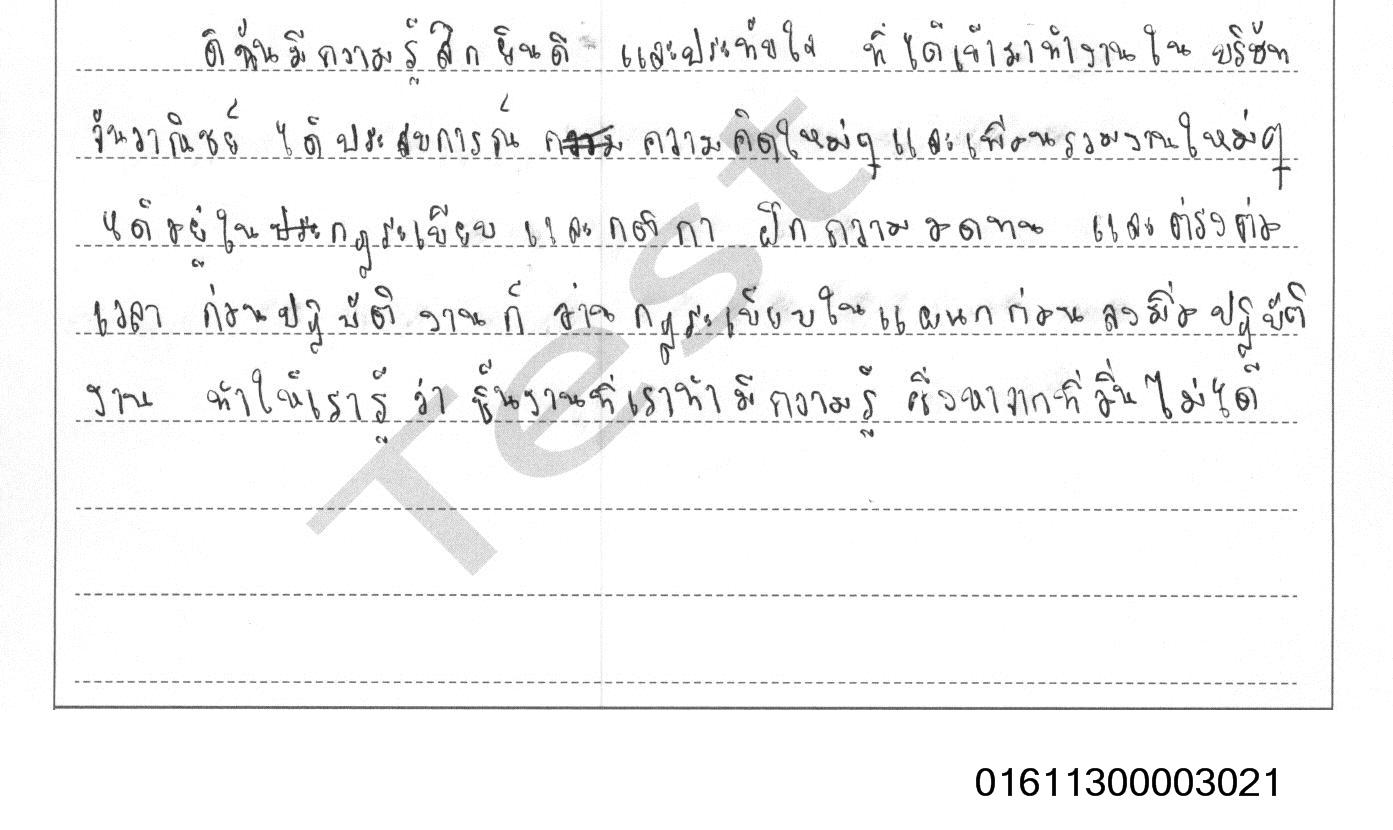 ดิฉันมีความรู้สึกยินดี และประทับใจ ที่ได้เข้ามาทำงานใน บริษัท
จันวาณิชย์ ได้ประสบการณ์ ความคิดใหม่ๆ และเพื่อนรวมงานใหม่ๆ
ได้อยู่ในกฎระเบียบ และกติกา ฝึกความอดทน และตรงต่อ
เวลา ก่อนปฏิบัติงานก็ อ่านกฎระเบียบในแผนกก่อนลงมือปฏิบัติ
งาน ทำให้เรารู้ว่า ชิ้นงานที่เราทำมีความรู้ ซึ่งหาจากที่อื่นไม่ได้
Test
01611300003021